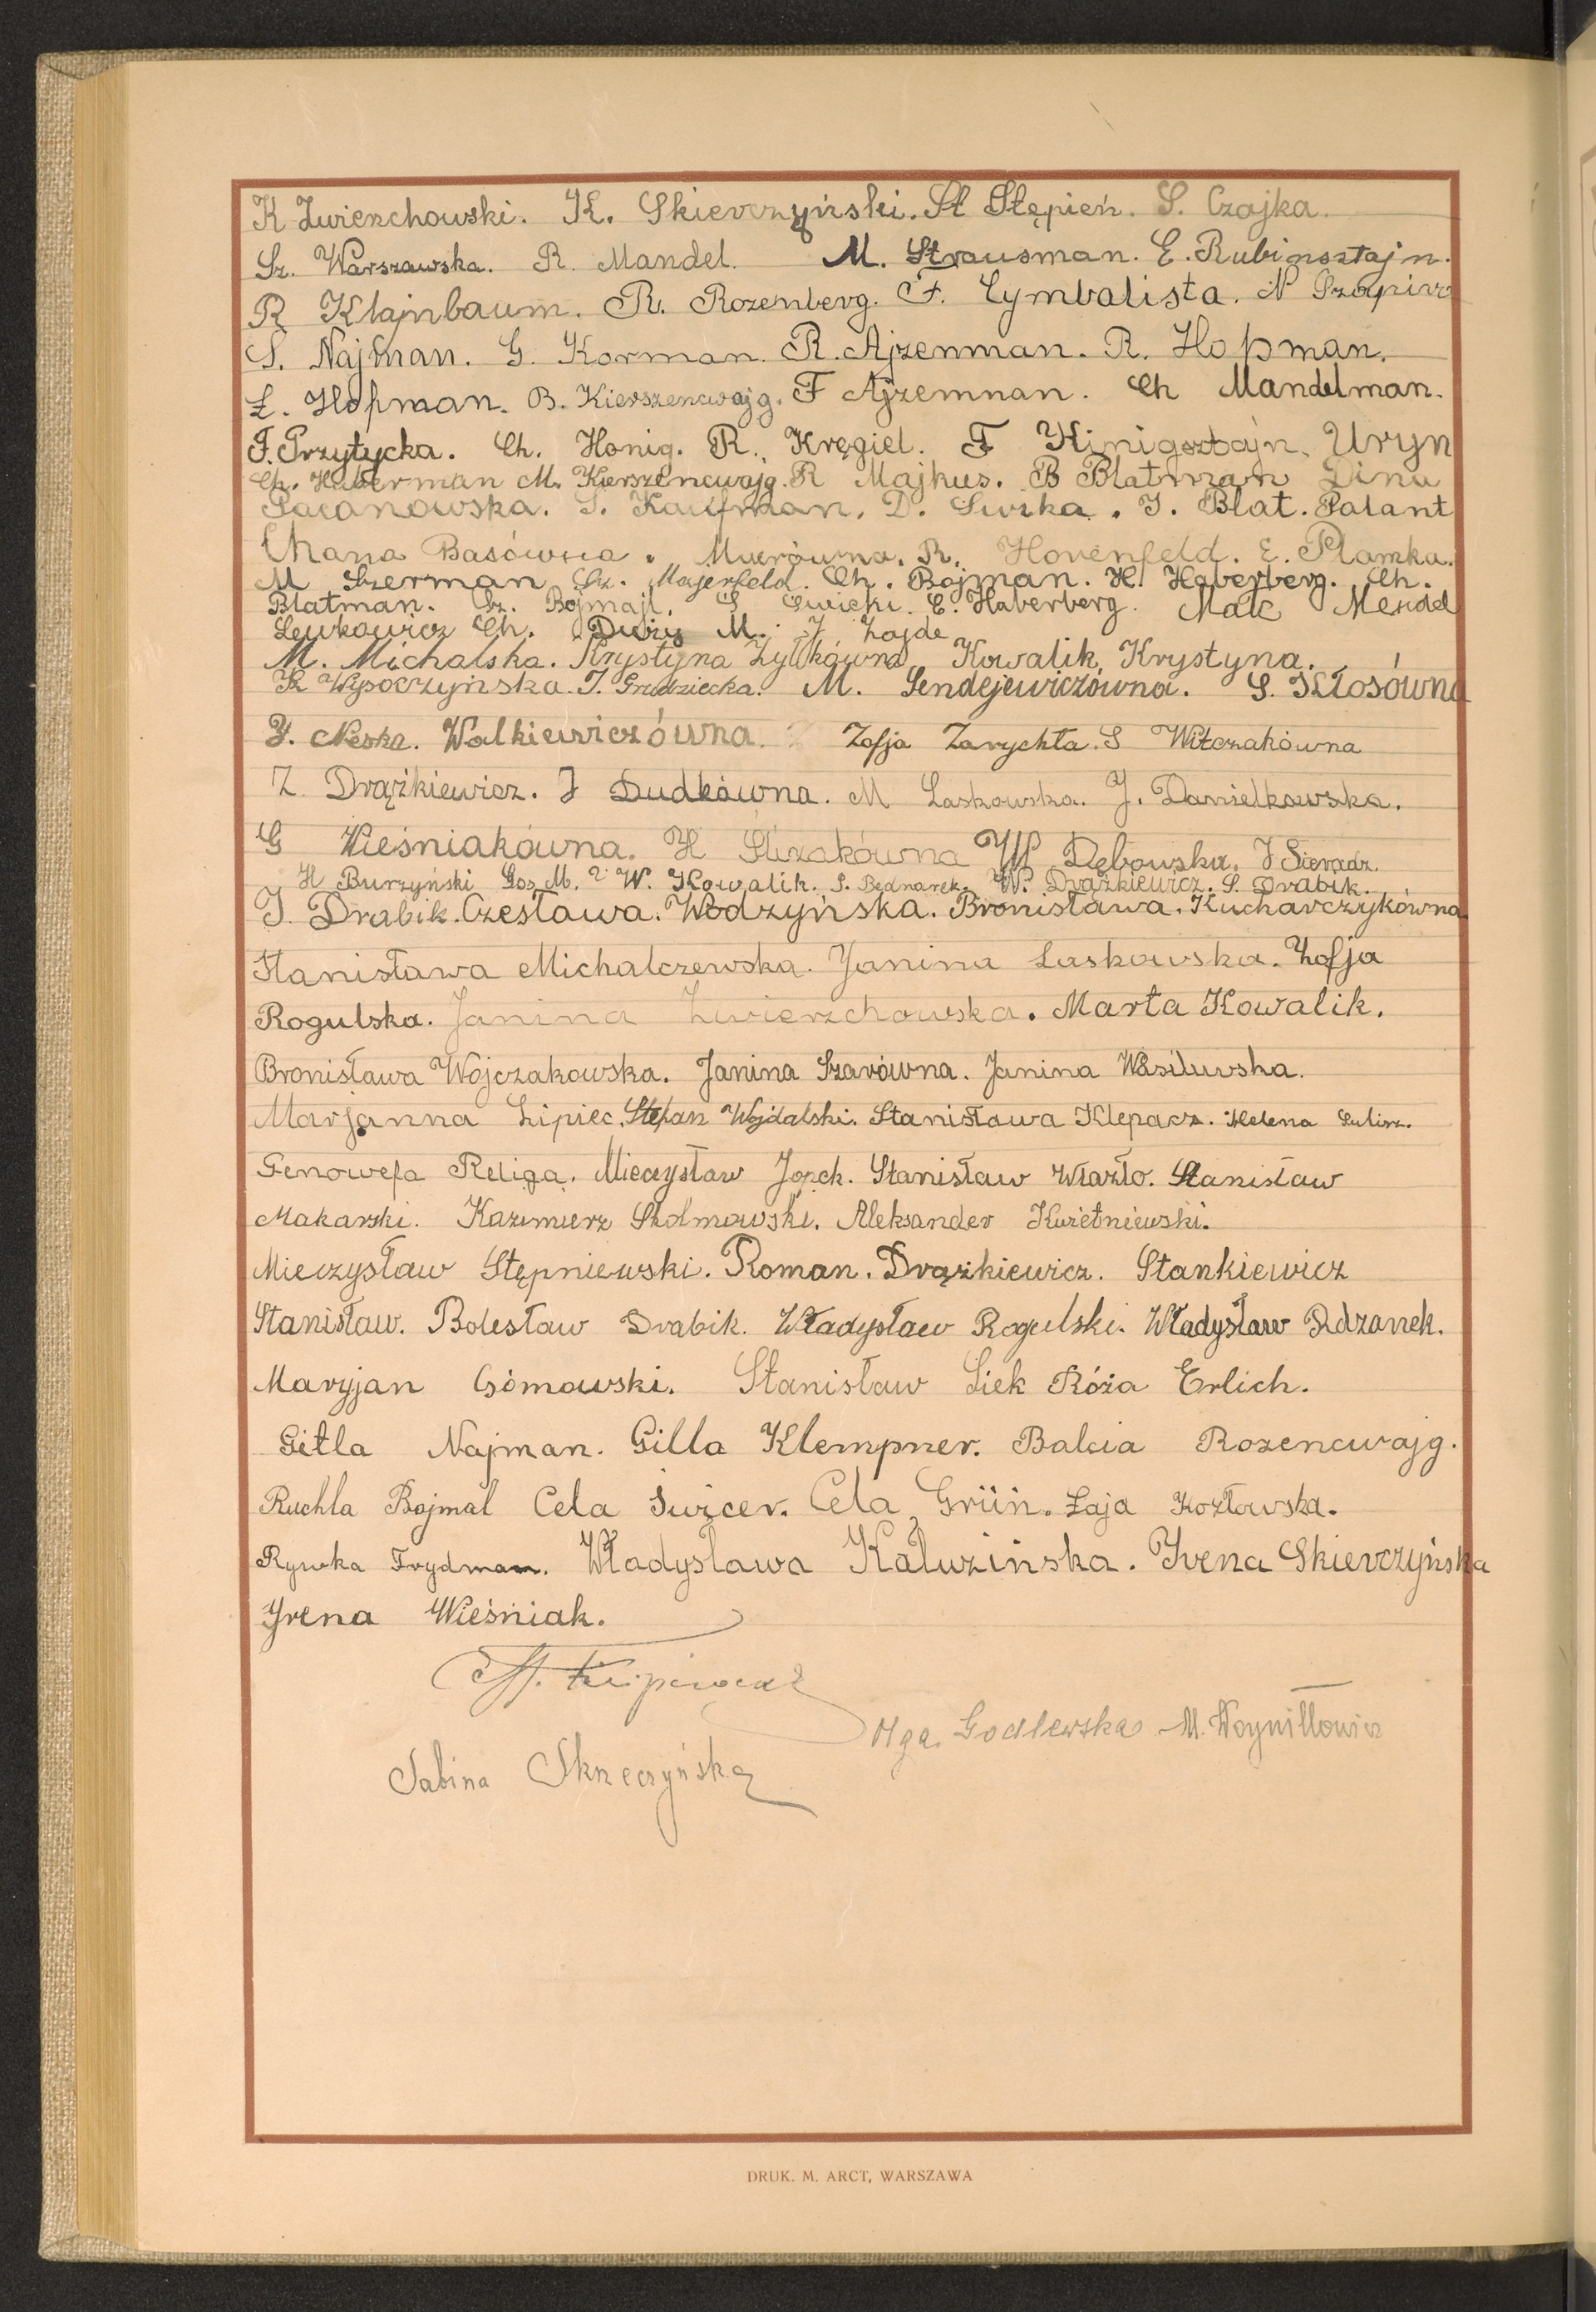 K Zwierzchowski. K. Skierczyński. St Stępień. S. Czajka.
Sz. Warszawska. R. Mandel. M. Strausman. E. Rubinsztajn.
R Klajnbaum. R. Rozenberg. F. Cymbalista. N Szapiro
S. Najman. G. Korman. R. Ajzenman. R. Hopman.
Ł. Hopman. B. Kierszencwajg. F Ajzemnan. Ch Mandelman.
F. Przytycka. Ch. Honig. R. Kręgiel. F Kinigsztajn. Uryn
Ch. Haberman M. Kierszencwajg. R Majkus. B Blatman Dina
Pacanowska. S. Kaufman. D. Surka. J. Blat. Palant
Chana Basówna. R. Hovenfeld. E. Plamka.
M Szerman Sz. Majerfeld. Ch. Bojman. H. Haberberg. Ch.
Blatman. Sz. Bojmajl. S Swicki. E. Haberberg. Mak Mendel
Lewkowicz Ch. Duży M. J Zajde
M. Michalska. Krystyna Żyłkówna. Kowalik Krystyna.
K Wysoczyńska. J. Grudziecka. M. Sendejewiczówna. S. Kłosówna
J. Neska. Walkiewiczówna. Zofja Zarychta. S Witczakówna
Z. Drążkiewicz. J Dudkówna. M Laskowska. J. Danielkowska.
G Wieśniakówna. H Ślizakówna M Dębowska. J Sieradz.
H Burzyński Gos M. W. Kowalik. S. Bednarek. W. Drążkiewicz. S. Drabik.
J. Drabik. Czesława. Wodzyńska. Bronisława. Kucharczykówna
Stanisława Michalczewska. Janina Laskowska. Zofja
Rogulska. Janina Zwierzchowska. Marta Kowalik.
Bronisława Wojczakowska. Janina Szarówna. Janina Wasilewska.
Marjanna Lipiec. Stefan Wojdalski. Stanisława Klepacz. Helena
Genowefa Religa. Mieczysław Jopek. Stanisław Właźło. Stanisław
Makarski. Kazimierz Skolmowski. Aleksander Kwietniewski.
Mieczysław Stępniewski. Roman. Drązkiewicz. Stankiewicz
Stanisław. Bolesław Drabik. Władysław Rogulski. Władysław Rdzanek.
Maryjan Gómowski. Stanisław Siek Róża Erlich.
Gitla Najman. Gilla Klempner. Balcia Rozencwajg.
Ruchla Bajmal Cela Swicer. Cela Grün. Łaja Kozłowska.
Rywka Frydman. Władysława Kałuzińska. Irena Skierczyńska
Irena Wieśniak.
Olga Godlewska M. Woyniłłowicz
Sabina Skneczyńska
DRUK. M. ARCT, WARSZAWA